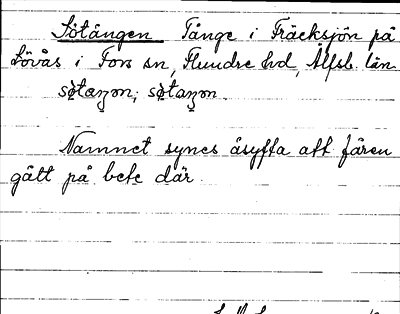 Sötången Tånge i Fräcksjön på
Lövås i Fors sn, Flundre hd, Älfsb. län
Namnet synes åsyfta att fåren
gått på bete där.